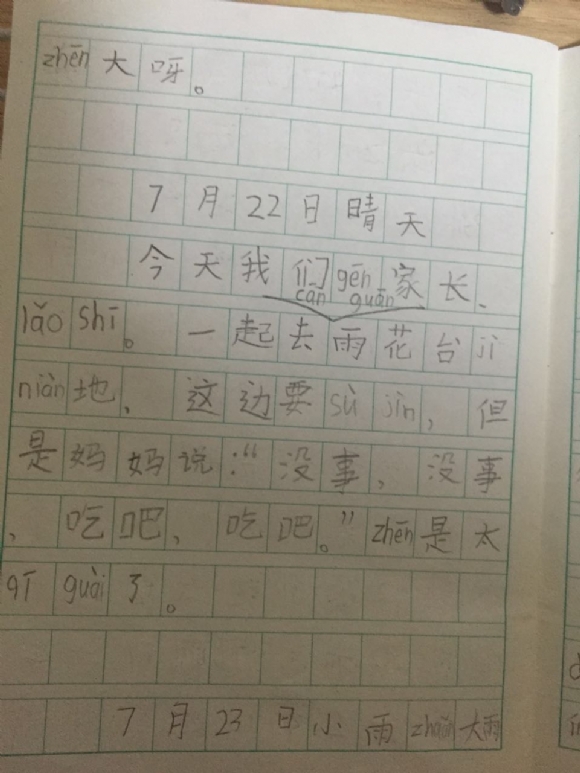 zhēn大呀。
7月22日晴天
今天我们gēn家长、
cān guān
lǎo shī。一起去雨花台jì
niàn地，这边要sù jìn，但
是妈妈说：“没事，没事
，吃吧，吃吧。”zhēn是太
qī guài了。
7月23日小雨zhuǎn大雨